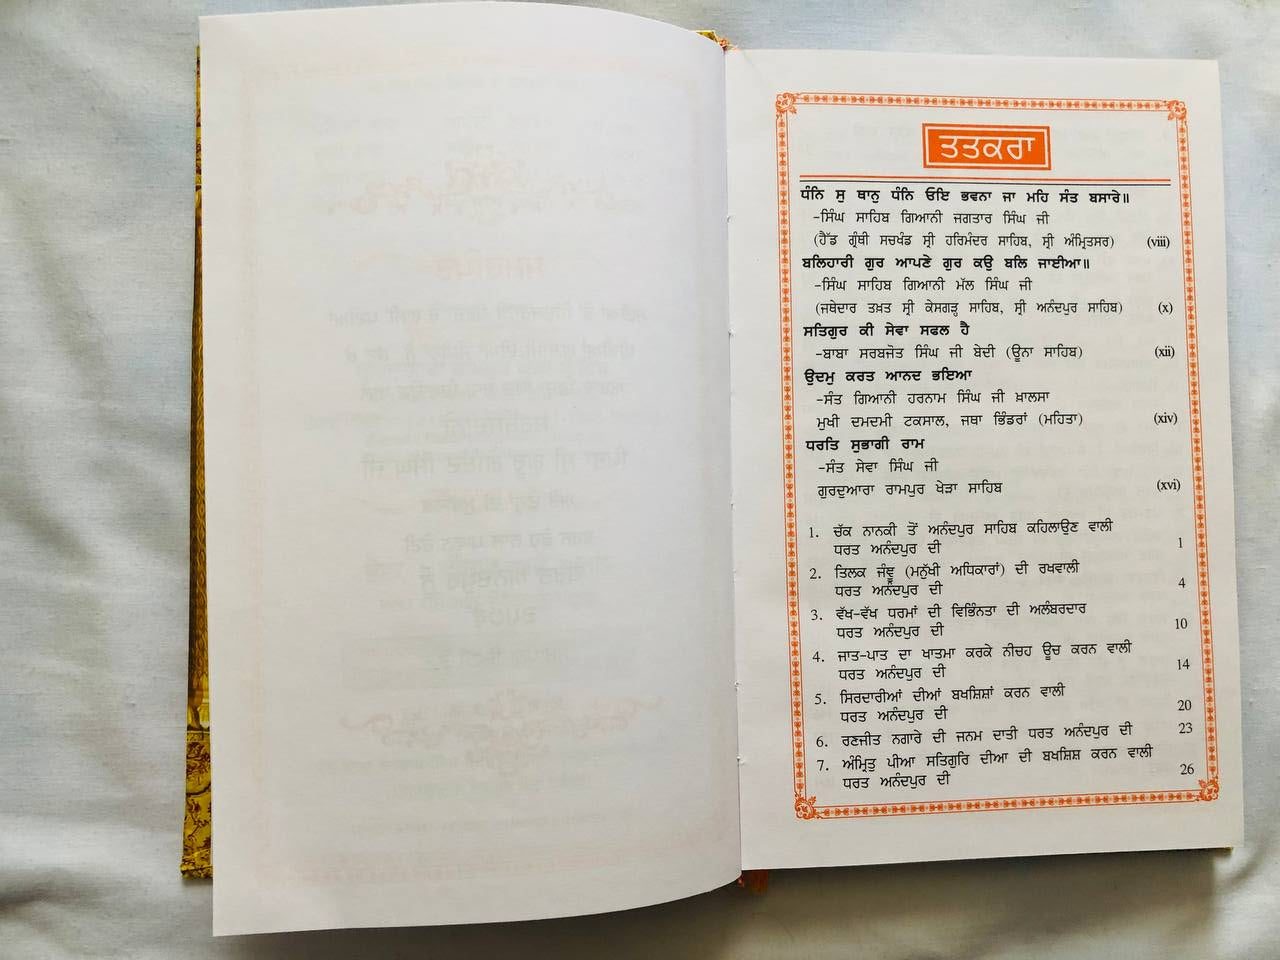 ਤਤਕਰਾ
ਧੰਨਿ ਸੁ ਥਾਨੁ ਧੰਨਿ ਓਇ ਭਵਨਾ ਜਾ ਮਹਿ ਸੰਤ ਬਸਾਰੇ॥
-ਸਿੰਘ ਸਾਹਿਬ ਗਿਆਨੀ ਜਗਤਾਰ ਸਿੰਘ ਜੀ
(ਹੈੱਡ ਗ੍ਰੰਥੀ ਸਚਖੰਡ ਸ੍ਰੀ ਹਰਿਮੰਦਰ ਸਾਹਿਬ, ਸ੍ਰੀ ਅੰਮ੍ਰਿਤਸਰ) (viii)
ਬਲਿਹਾਰੀ ਗੁਰ ਆਪਣੇ ਗੁਰ ਕਉ ਬਲਿ ਜਾਈਆ॥
-ਸਿੰਘ ਸਾਹਿਬ ਗਿਆਨੀ ਮੱਲ ਸਿੰਘ ਜੀ
(ਜਥੇਦਾਰ ਤਖ਼ਤ ਸ੍ਰੀ ਕੇਸਗੜ੍ਹ ਸਾਹਿਬ, ਸ੍ਰੀ ਅਨੰਦਪੁਰ ਸਾਹਿਬ) (x)
ਸਤਿਗੁਰ ਕੀ ਸੇਵਾ ਸਫਲ ਹੈ
-ਬਾਬਾ ਸਰਬਜੋਤ ਸਿੰਘ ਜੀ ਬੇਦੀ (ਊਨਾ ਸਾਹਿਬ) (xii)
ਉਦਮੁ ਕਰਤ ਆਨਦ ਭਇਆ
-ਸੰਤ ਗਿਆਨੀ ਹਰਨਾਮ ਸਿੰਘ ਜੀ ਖ਼ਾਲਸਾ
ਮੁਖੀ ਦਮਦਮੀ ਟਕਸਾਲ, ਜਥਾ ਭਿੰਡਰਾਂ (ਮਹਿਤਾ) (xiv)
ਧਰਤਿ ਸੁਭਾਗੀ ਰਾਮ
-ਸੰਤ ਸੇਵਾ ਸਿੰਘ ਜੀ
ਗੁਰਦੁਆਰਾ ਰਾਮਪੁਰ ਖੇੜਾ ਸਾਹਿਬ (xvi)
1. ਚੱਕ ਨਾਨਕੀ ਤੋਂ ਅਨੰਦਪੁਰ ਸਾਹਿਬ ਕਹਿਲਾਉਣ ਵਾਲੀ
ਧਰਤ ਅਨੰਦਪੁਰ ਦੀ 1
2. ਤਿਲਕ ਜੰਞੂ (ਮਨੁੱਖੀ ਅਧਿਕਾਰਾਂ) ਦੀ ਰਖਵਾਲੀ
ਧਰਤ ਅਨੰਦਪੁਰ ਦੀ 4
3. ਵੱਖ-ਵੱਖ ਧਰਮਾਂ ਦੀ ਵਿਭਿੰਨਤਾ ਦੀ ਅਲੰਬਰਦਾਰ
ਧਰਤ ਅਨੰਦਪੁਰ ਦੀ 10
4. ਜਾਤ-ਪਾਤ ਦਾ ਖਾਤਮਾ ਕਰਕੇ ਨੀਚਹ ਊਚ ਕਰਨ ਵਾਲੀ
ਧਰਤ ਅਨੰਦਪੁਰ ਦੀ 14
5. ਸਿਰਦਾਰੀਆਂ ਦੀਆਂ ਬਖਸ਼ਿਸ਼ਾਂ ਕਰਨ ਵਾਲੀ
ਧਰਤ ਅਨੰਦਪੁਰ ਦੀ 20
6. ਰਣਜੀਤ ਨਗਾਰੇ ਦੀ ਜਨਮ ਦਾਤੀ ਧਰਤ ਅਨੰਦਪੁਰ ਦੀ 23
7. ਅੰਮ੍ਰਿਤੁ ਪੀਆ ਸਤਿਗੁਰਿ ਦੀਆ ਦੀ ਬਖਸ਼ਿਸ਼ ਕਰਨ ਵਾਲੀ
ਧਰਤ ਅਨੰਦਪੁਰ ਦੀ 26